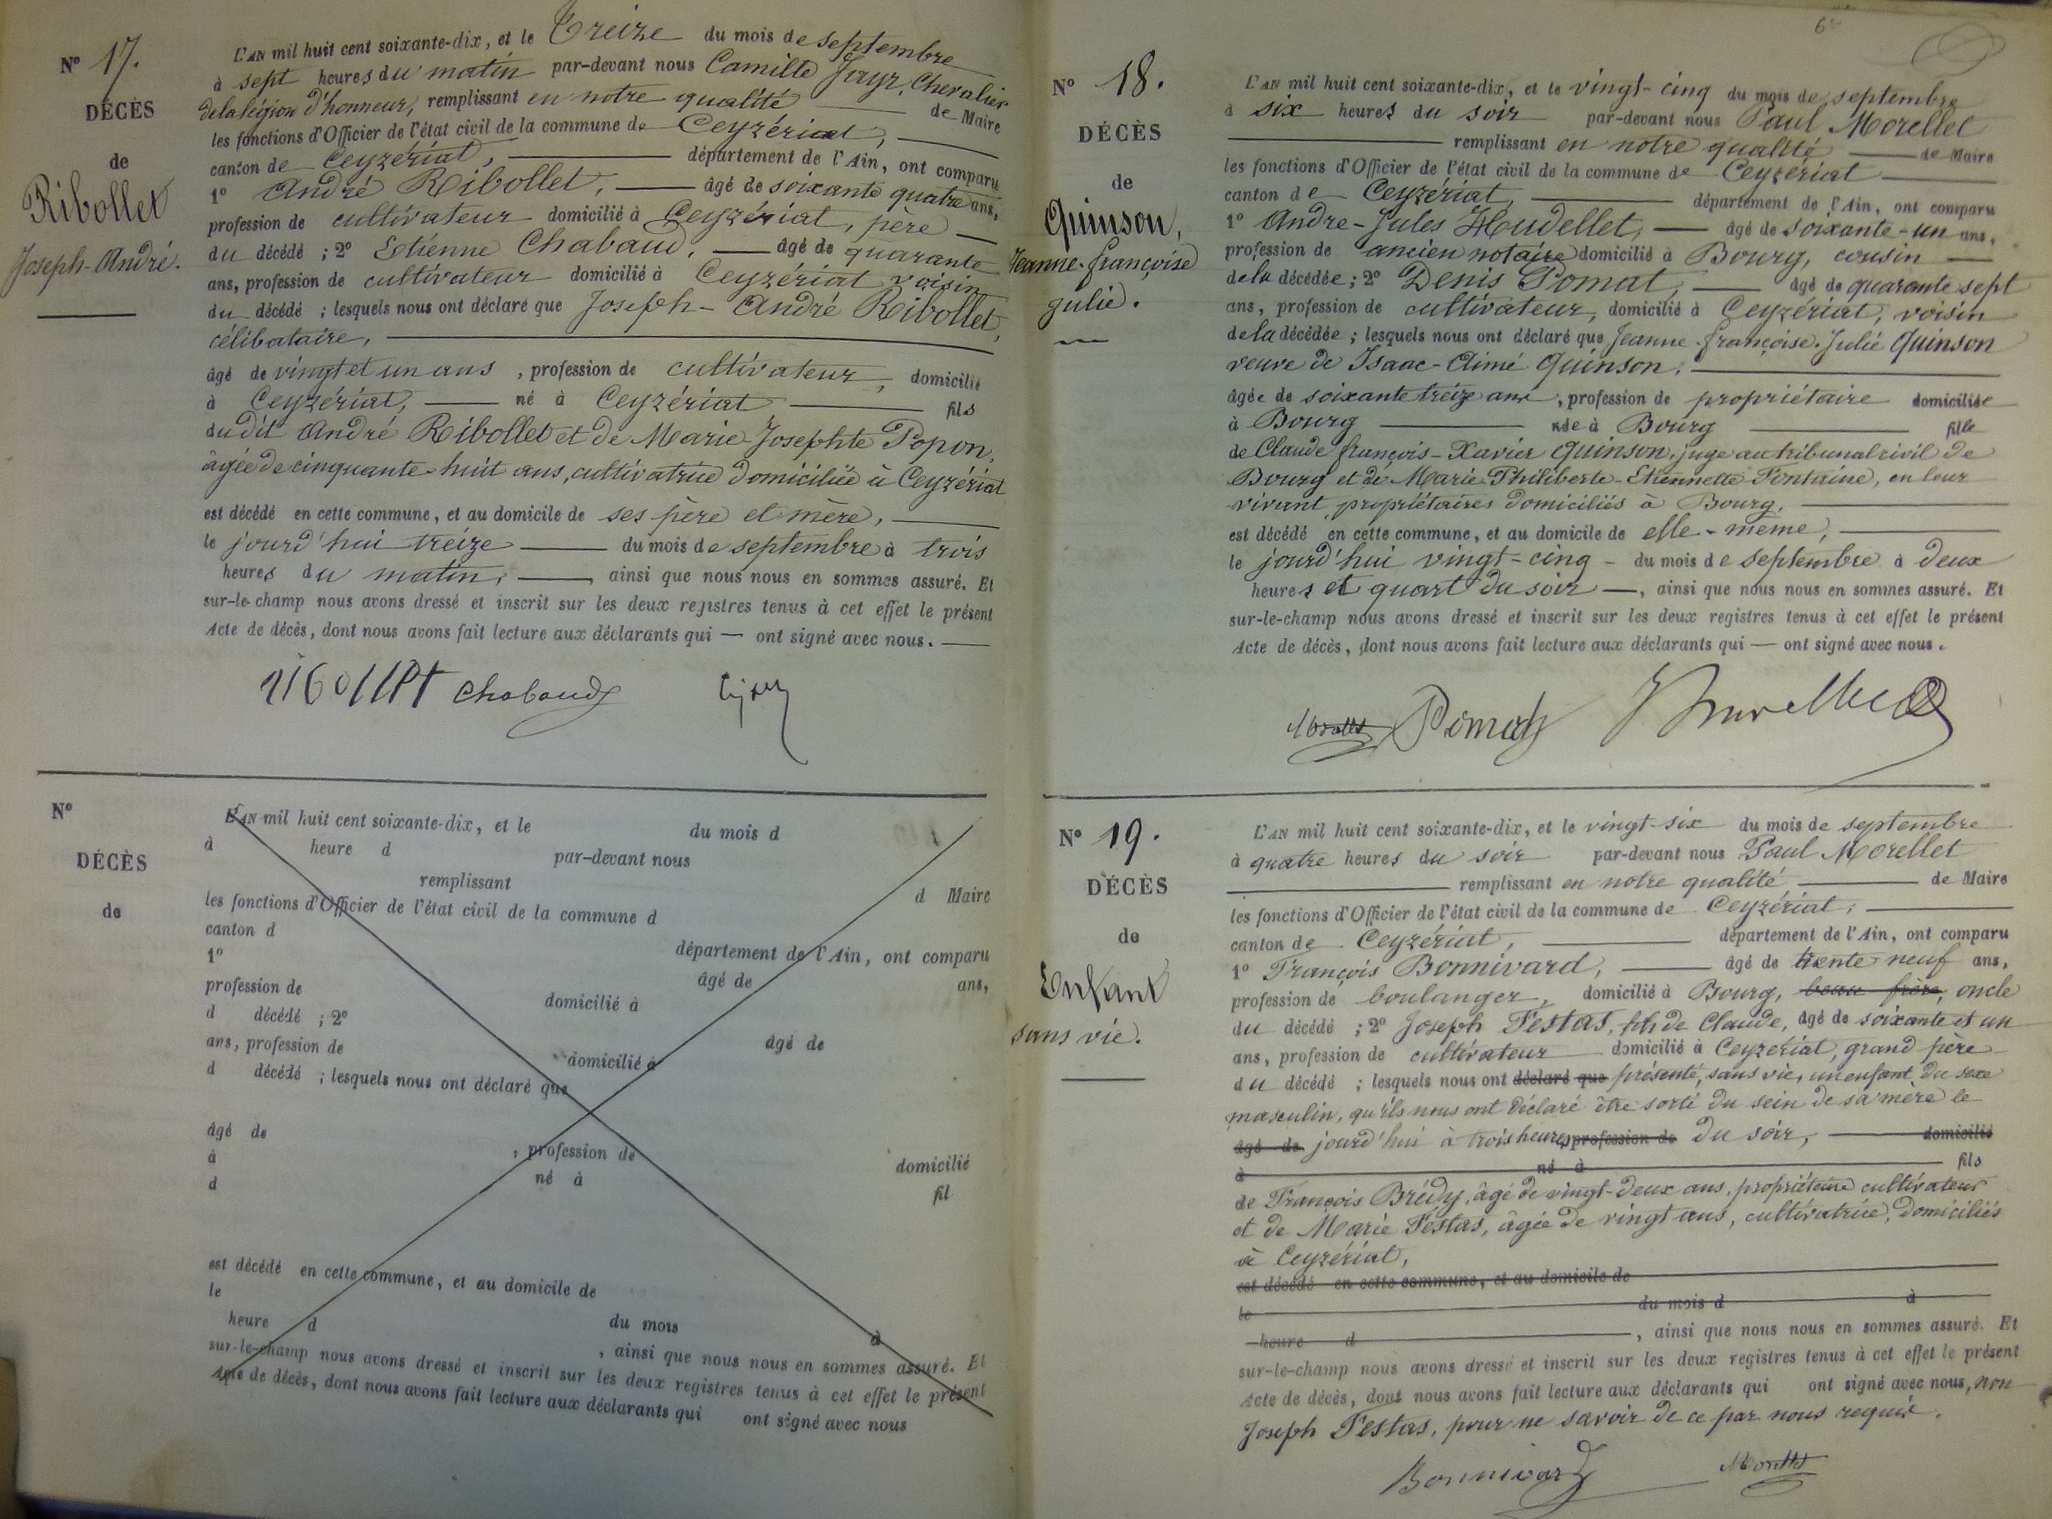 N° 17.
DÉCÈS
de
Ribollet
Joseph-André.
L'AN mil huit cent soixante-dix, et le Treize du mois de septembre
à sept heures du matin par-devant nous Camille Jayr, Chevalier
de la légion d'honneur, remplissant en notre qualité de Maire
les fonctions d'Officier de l'état civil de la commune de Ceyzériat,
canton de Ceyzériat, département de l'Ain, ont comparu
1° André Ribollet, âgé de soixante quatre ans,
profession de cultivateur domicilié à Ceyzériat, père
du décédé ; 2° Etienne Chabaud, âgé de quarante
ans, profession de cultivateur domicilié à Ceyzériat voisin
du décédé ; lesquels nous ont déclaré que Joseph-André Ribollet,
célibataire,
âgé de vingt et un ans , profession de cultivateur, domicilié
à Ceyzériat, né à Ceyzériat fils
du dit André Ribollet et de Marie-Josephte Popon,
âgée de cinquante-huit ans, cultivatrice domiciliée à Ceyzériat
est décédé en cette commune, et au domicile de ses père et mère,
le jourd'hui treize du mois de septembre à trois
heures du matin, ainsi que nous nous en sommes assuré. Et
sur-le-champ nous avons dressé et inscrit sur les deux registres tenus à cet effet le présent
Acte de décès, dont nous avons fait lecture aux déclarants qui — ont signé avec nous.
ribollet Chabaud
N°
DÉCÈS
de
L'AN mil huit cent soixante-dix, et le du mois d
à heure d par-devant nous
remplissant d Maire
les fonctions d'Officier de l'état civil de la commune d
canton d département de l'Ain, ont comparu
1° âgé de ans,
profession de domicilié à
d décédé ; 2° âgé de
ans, profession de domicilié à
d décédé ; lesquels nous ont déclaré que
âgé de , profession de domicilié
à né à fil
d
est décédé en cette commune, et au domicile de
le du mois à
heure d , ainsi que nous nous en sommes assuré. Et
sur-le-champ nous avons dressé et inscrit sur les deux registres tenus à cet effet le présent
Acte de décès, dont nous avons fait lecture aux déclarants qui ont signé avec nous
N° 18.
DÉCÈS
de
Quinson,
Jeanne-françoise
julie.
L'AN mil huit cent soixante-dix, et le vingt-cinq du mois de septembre
à six heures du soir par-devant nous Paul Morellet
remplissant en notre qualité de Maire
les fonctions d'Officier de l'état civil de la commune de Ceyzériat
canton de Ceyzériat, département de l'Ain, ont comparu
1° André-Jules Houdellet, âgé de soixante-un ans,
profession de ancien notaire domicilié à Bourg, cousin
de la décédée ; 2° Denis Pomat, âgé de quarante sept
ans, profession de cultivateur, domicilié à Ceyzériat, voisin
de la décédée ; lesquels nous ont déclaré que Jeanne-françoise-Julie Quinson
veuve de Isaac-Aimé Quinson,
âgée de soixante treize ans , profession de propriétaire domiciliée
à Bourg née à Bourg fille
de Claude françois-Xavier Quinson, juge au tribunal civil de
Bourg et de Marie-Philiberte-Etiennette Fontaine, en leur
vivant propriétaires domiciliés à Bourg,
est décédé en cette commune, et au domicile de elle-même,
le jourd'hui vingt-cinq - du mois de septembre à deux
heures et quart du soir —, ainsi que nous nous en sommes assuré. Et
sur-le-champ nous avons dressé et inscrit sur les deux registres tenus à cet effet le présent
Acte de décès, dont nous avons fait lecture aux déclarants qui — ont signé avec nous.
Morellet Pomat
N° 19.
DÉCÈS
de
Enfant
sans vie.
L'AN mil huit cent soixante-dix, et le vingt-six du mois de septembre
à quatre heures du soir par-devant nous Paul Morellet
remplissant en notre qualité de Maire
les fonctions d'Officier de l'état civil de la commune de Ceyzériat,
canton de Ceyzériat, département de l'Ain, ont comparu
1° François Bonnivard, âgé de trente neuf ans,
profession de boulanger, domicilié à Bourg, beau frère, oncle
du décédé ; 2° Joseph Festas, fils de Claude, âgé de soixante et un
ans, profession de cultivateur domicilié à Ceyzériat, grand père
du décédé ; lesquels nous ont déclaré que présenté, sans vie, un enfant du sexe
masculin, qu'ils nous ont déclaré être sorti du sein de sa mère le
âgé de jourd'hui à trois heures, profession de du soir, domicilié
à né à fils
de François Brédy, âgé de vingt-deux ans, propriétaire cultivateur
et de Marie Festas, âgée de vingt ans, cultivatrice, domiciliés
à Ceyzériat,
est décédé en cette commune, et au domicile de
le du mois d à
heure d , ainsi que nous nous en sommes assuré. Et
sur-le-champ nous avons dressé et inscrit sur les deux registres tenus à cet effet le présent
Acte de décès, dont nous avons fait lecture aux déclarants qui ont signé avec nous, non
Joseph Festas, pour ne savoir de ce par nous requis.
Bonnivard Morellet